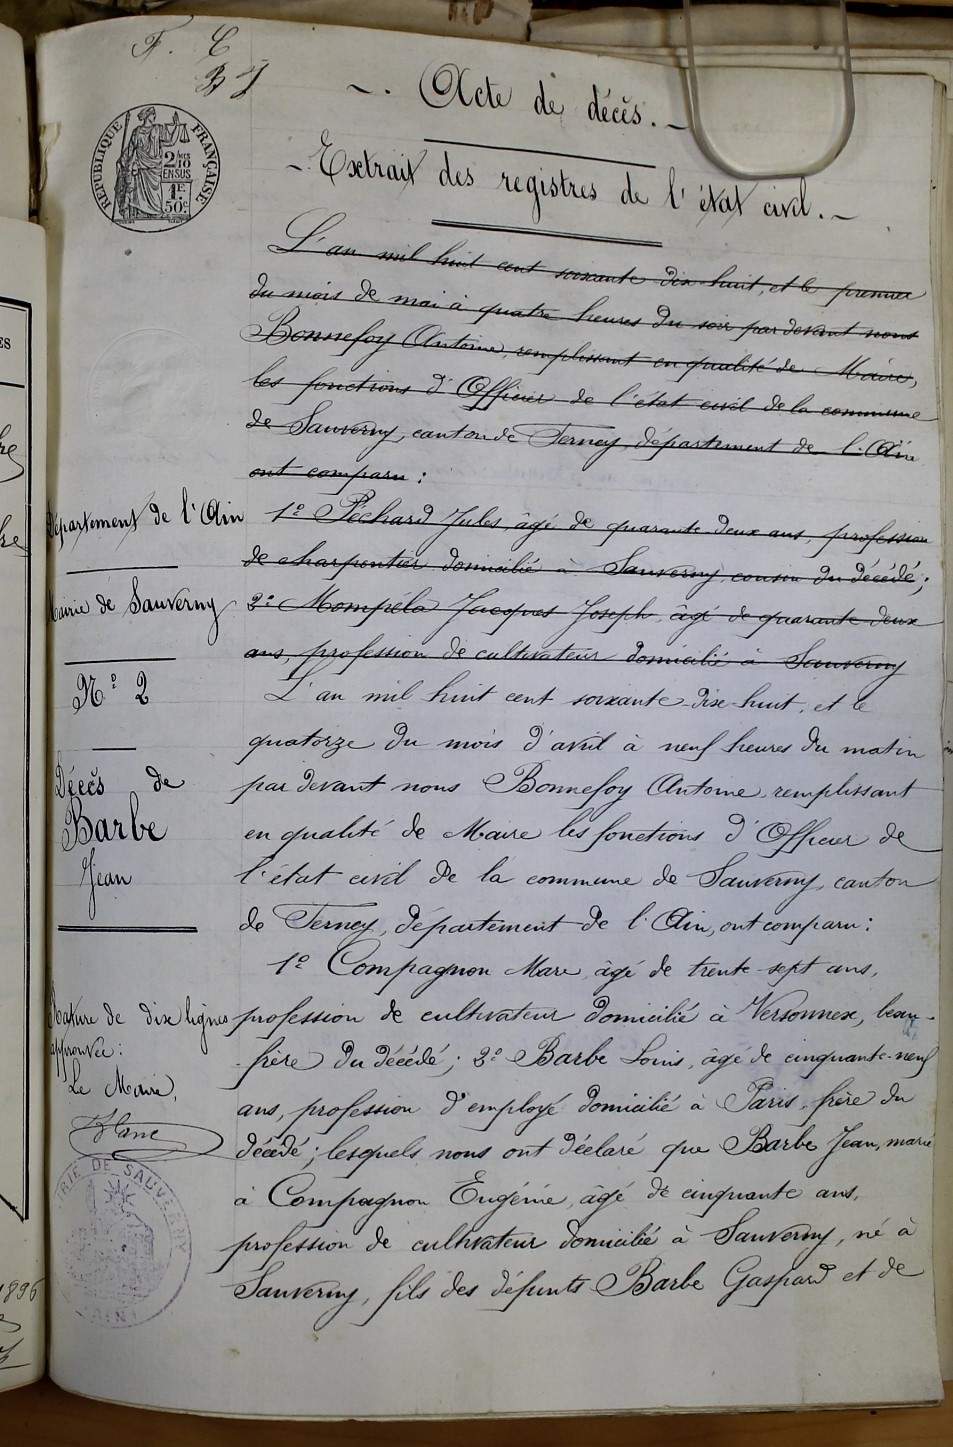 F. C
B J
REPUBLIQUE FRANÇAISE
2/10
EN SUS
1F.
50c.
Acte de décès.
Extrait des registres de l'état civil.
L'an mil huit cent soixante dix-huit, et le premier
du mois de mai à quatre heures du soir par devant nous
Bonnefoy Antoine, remplissant en qualité de Maire,
les fonctions d'Officier de l'état civil de la commune
de Sauverny, canton de Ferney, département de l'Ain
ont comparu :
1º Péchard Jules, âgé de quarante-deux ans, profession
de charpentier domicilié à Sauverny cousin du décédé ;
2º Mompéla Jacques Joseph, âgé de quarante-deux
ans, profession de cultivateur domicilié à Sauverny
Département de l'Ain
Mairie de Sauverny
Nº 2
Décès de
Barbe
Jean
L'an mil huit cent soixante-dix-huit, et le
quatorze du mois d'avril à neuf heures du matin
par devant nous Bonnefoy Antoine, remplissant
en qualité de Maire les fonctions d'Officier de
l'état civil de la commune de Sauverny, canton
de Ferney, département de l'Ain, ont comparu :
1º Compagnon Marc, âgé de trente-sept ans,
profession de cultivateur domicilié à Versonnex, beau-
frère du décédé ; 2º Barbe Louis, âgé de cinquante-neuf
ans, profession d'employé domicilié à Paris, frère du
décédé ; lesquels nous ont déclaré que Barbe Jean, marié
à Compagnon Eugénie, âgé de cinquante ans,
profession de cultivateur domicilié à Sauverny, né à
Sauverny, fils des défunts Barbe Gaspard et de
Rature de dix lignes
approuvée :
Le Maire,
MAIRIE DE SAUVERNY
AIN
1896